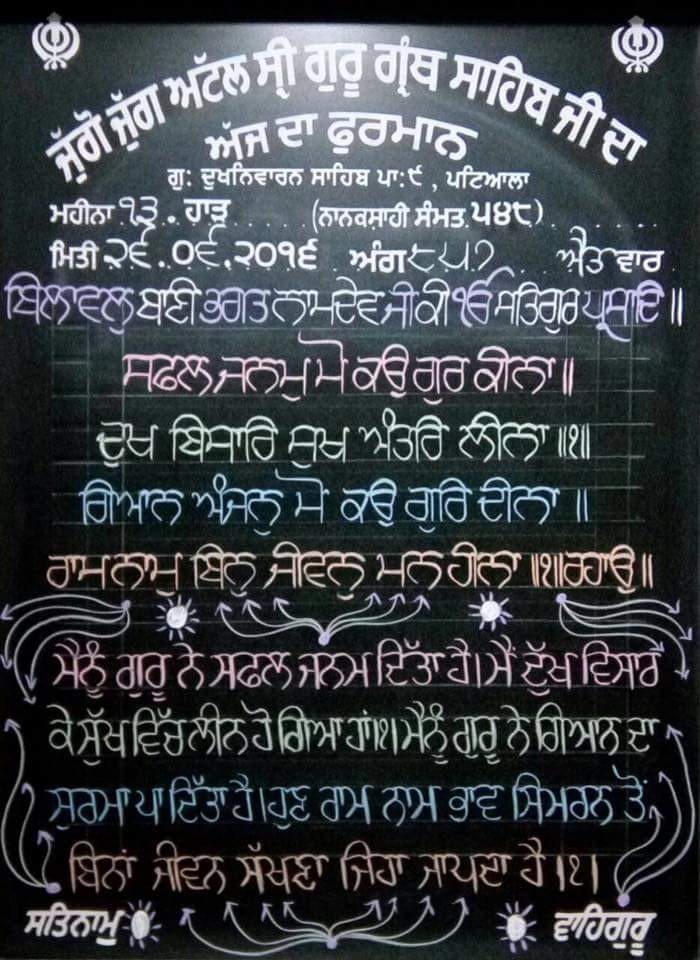 ਜੁੱਗੋ ਜੁੱਗ ਅਟੱਲ ਸ੍ਰੀ ਗੁਰੂ ਗ੍ਰੰਥ ਸਾਹਿਬ ਜੀ ਦਾ
ਅੱਜ ਦਾ ਫੁਰਮਾਨ
ਗੁ: ਦੁਖਨਿਵਾਰਨ ਸਾਹਿਬ ਪਾ:੯ , ਪਟਿਆਲਾ
ਮਹੀਨਾ ੧੩ ਹਾੜ (ਨਾਨਕਸ਼ਾਹੀ ਸੰਮਤ ੫੪੮)
ਮਿਤੀ ੨੬.੦੬.੨੦੧੬ ਅੰਗ ੮੫੭ ਐਤ ਵਾਰ
ਬਿਲਾਵਲੁ ਬਾਣੀ ਭਗਤ ਨਾਮਦੇਵ ਜੀ ਕੀ ੴ ਸਤਿਗੁਰ ਪ੍ਰਸਾਦਿ ॥
ਸਫਲ ਜਨਮੁ ਮੋ ਕਉ ਗੁਰ ਕੀਨਾ ॥
ਦੁਖ ਬਿਸਾਰਿ ਸੁਖ ਅੰਤਰਿ ਲੀਨਾ ॥੧॥
ਗਿਆਨ ਅੰਜਨੁ ਮੋ ਕਉ ਗੁਰਿ ਦੀਨਾ ॥
ਰਾਮ ਨਾਮੁ ਬਿਨੁ ਜੀਵਨੁ ਮਨ ਹੀਨਾ ॥੧॥ਰਹਾਉ॥
ਮੈਨੂੰ ਗੁਰੂ ਨੇ ਸਫਲ ਜਨਮ ਦਿੱਤਾ ਹੈ। ਮੈਂ ਦੁੱਖ ਵਿਸਾਰ
ਕੇ ਸੁੱਖ ਵਿੱਚ ਲੀਨ ਹੋ ਗਿਆ ਹਾਂ।੧। ਮੈਨੂੰ ਗੁਰੂ ਨੇ ਗਿਆਨ ਦਾ
ਸੁਰਮਾ ਪਾ ਦਿੱਤਾ ਹੈ। ਹੁਣ ਰਾਮ ਨਾਮ ਭਾਵ ਸਿਮਰਨ ਤੋਂ
ਬਿਨਾਂ ਜੀਵਨ ਸੱਖਣਾ ਜਿਹਾ ਜਾਪਦਾ ਹੈ ।੧।
ਸਤਿਨਾਮੁ ਵਾਹਿਗੁਰੂ